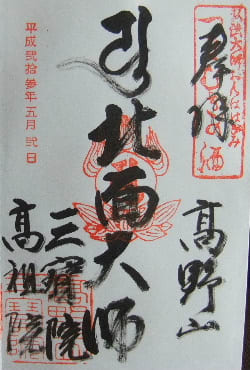 奉拝
高野山
北面大師
三寳院
高祖院
平成弐拾参年五月弐日